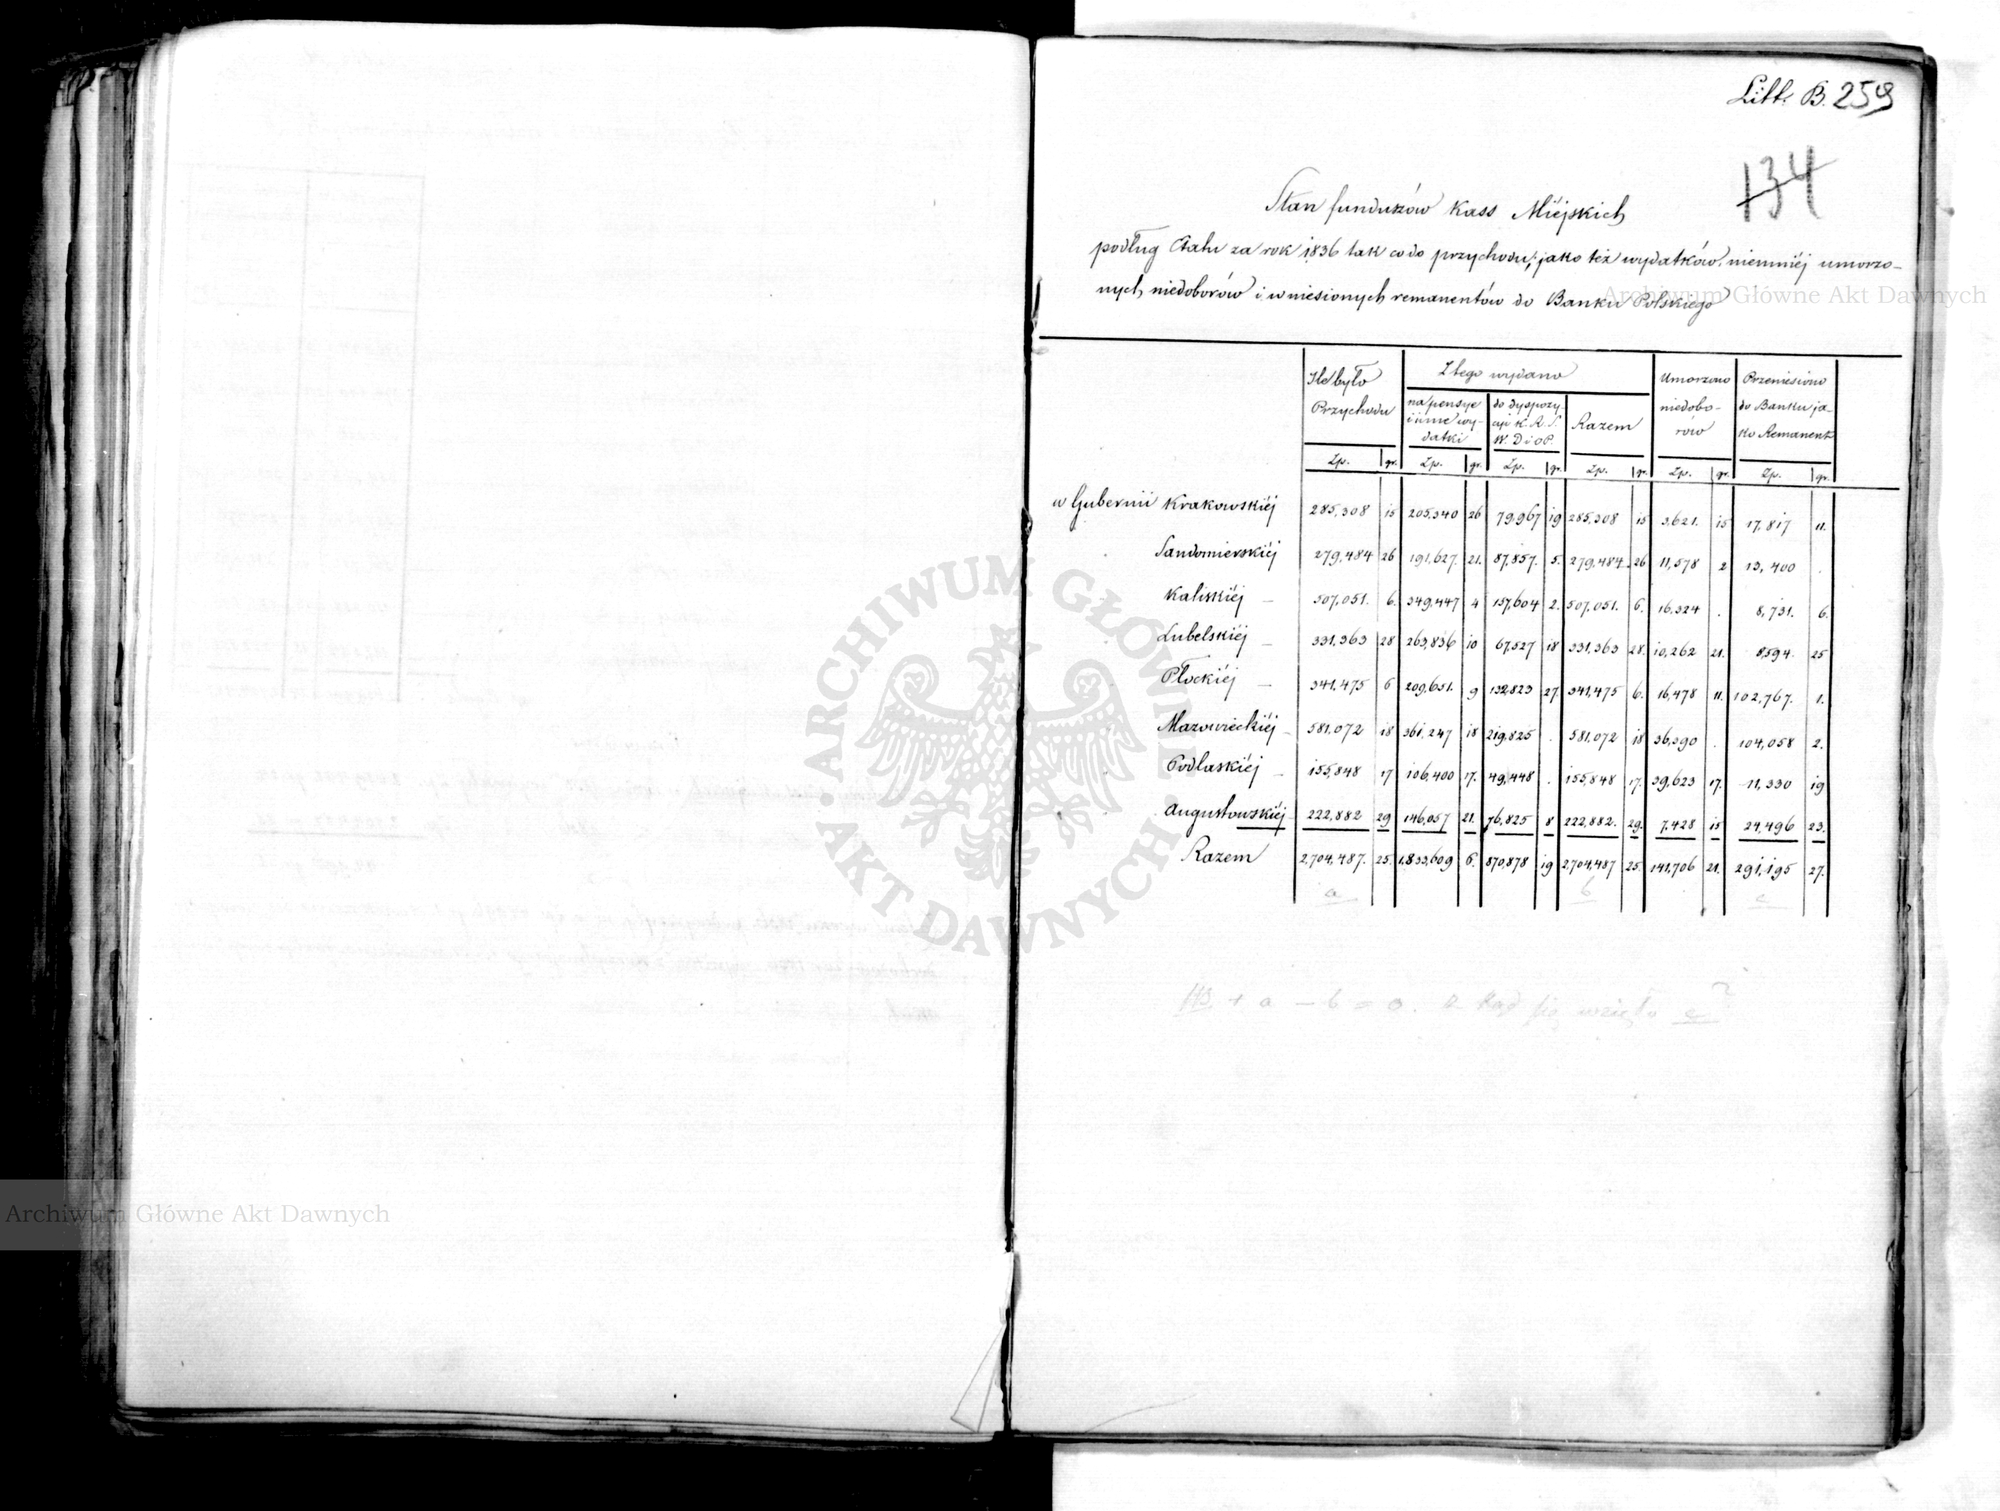 Litt. B. 259
134
Stan funduszów Kass Miéjskich
podług Etatu za rok 1836 tak co do przychodu, jako też wydatków, niemniéj umorzo-
nych niedoborów i wniesionych remanentów do Banku Polskiego
Ile było Z tego wydano Umorzono Przeniesiono
Przychodu na pensye do dyspozy- Razem niedobo- do Banku ja-
i inne wy- cyi K. R. S. rów ko Remanent
datki W. D i OP.
Zp. gr. Zp. gr. Zp. gr. Zp. gr. Zp. gr. Zp. gr.
w Gubernii Krakowskiéj 285,308 15 205,340 26 79,967 19 285,308 15 3,621. 15 17,817 11.
Sandomierskiéj 279,484 26 191,627. 21. 87,857. 5. 279,484. 26 11,578 2 13,400 .
Kaliskiéj — 507,051. 6. 349,447 4 157,604 2. 507,051. 6. 16,324 . 8,731. 6.
Lubelskiéj — 331,363 28 263,836 10 67,527 18 331,363 28. 10,262 21. 8,594. 25
Płockiéj — 341,475 6 209,651. 9 131,823 27. 341,475 6. 16,478 11. 102,767. 1.
Mazowieckiéj — 581,072 18 361,247 18 219,825 . 581,072 18 36,390 . 104,058 2.
Podlaskiéj — 155,848 17 106,400 17. 49,448 . 155,848 17. 39,623 17. 11,330 19
Augustowskiéj 222,882 29 146,057 21. 76,825 8 222,882. 29. 7,428 15 24,496 23.
Razem 2,704,487. 25. 1,833,609 6. 870,878 19 2,704,487 25. 141,706 21. 291,195 27.
a b c
+ a — b = o. Z kąd się wzięło c ?
Archiwum Główne Akt Dawnych
ARCHIWUM GŁÓWNE
• AKT DAWNYCH •
Archiwum Główne Akt Dawnych